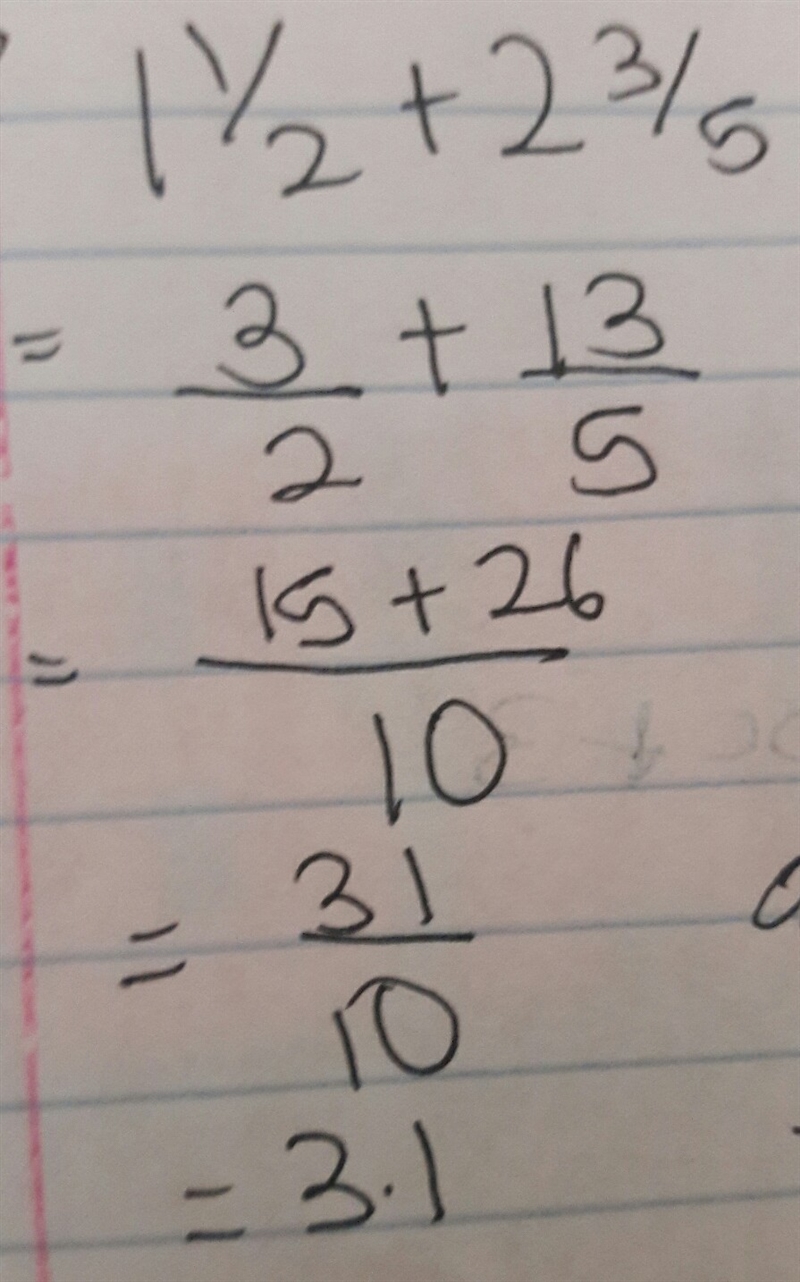 1 1/2 + 2 3/5
= 3/2 + 13/5
= 15 + 26 / 10
= 31/10
= 3.1